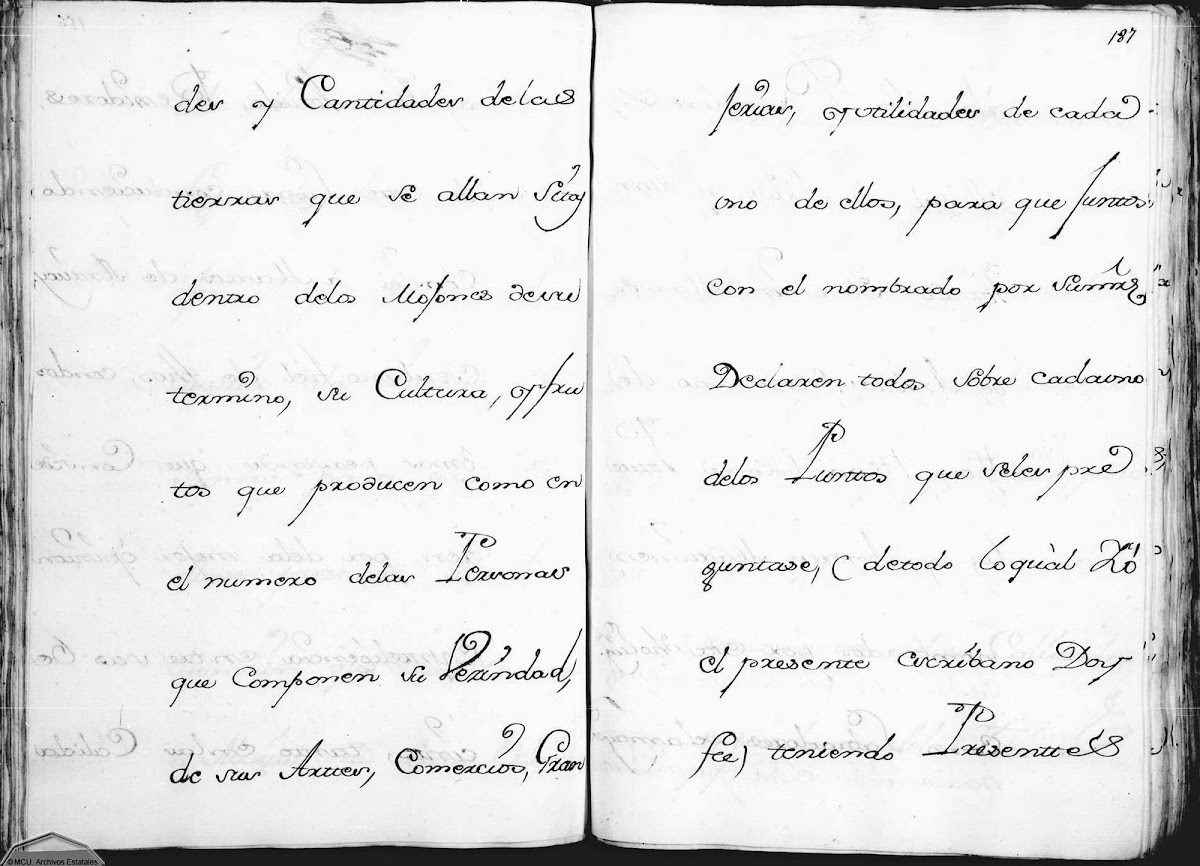 des y Cantidades de las
tierras que se allan
dentro delos Mojones de su
termino, su Cultura, y fru
tos que producen como en
el numero delas Personas
que Componen su Vezindad,
de sus Artes, Comercios, Gran
187
serias, y utilidades de cada
uno de ellos, para que Juntos
con el nombrado por sumrz
Declaren todos sobre cadauno
delos Puntos que seles pre
guntase, (detodo loquàl Yó
el presente escribano Doy
feè) teniendo Presenttes
© MCU. Archivos Estatales